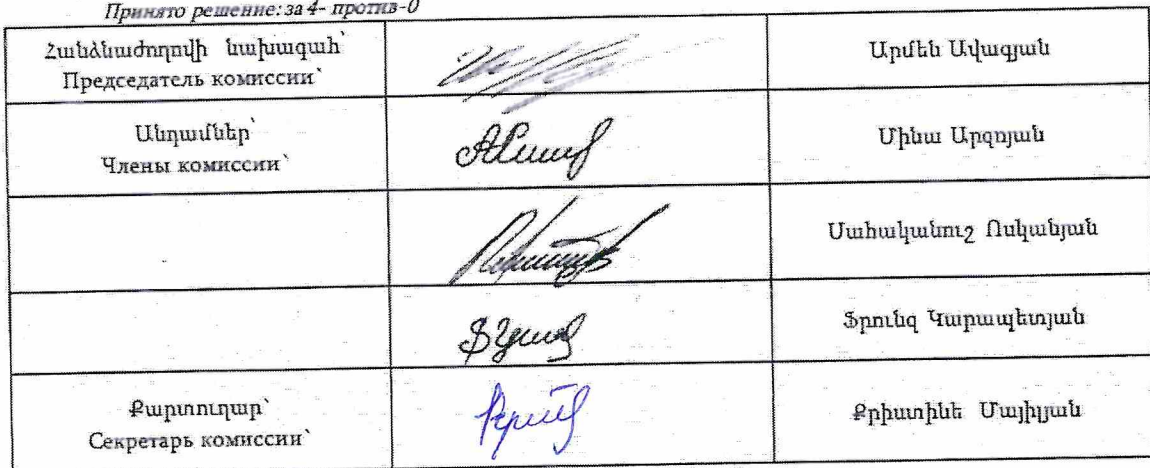 Принято решение: за 4- против-0
Հանձնաժողովի նախագահ՝
Председатель комиссии՝
Արմեն Ավագյան
Անդամներ՝
Члены комиссии՝
Մինա Արզոյան
Սահականուշ Ոսկանյան
Ֆրունզ Կարապետյան
Քարտուղար՝
Секретарь комиссии՝
Քրիստինե Մայիլյան